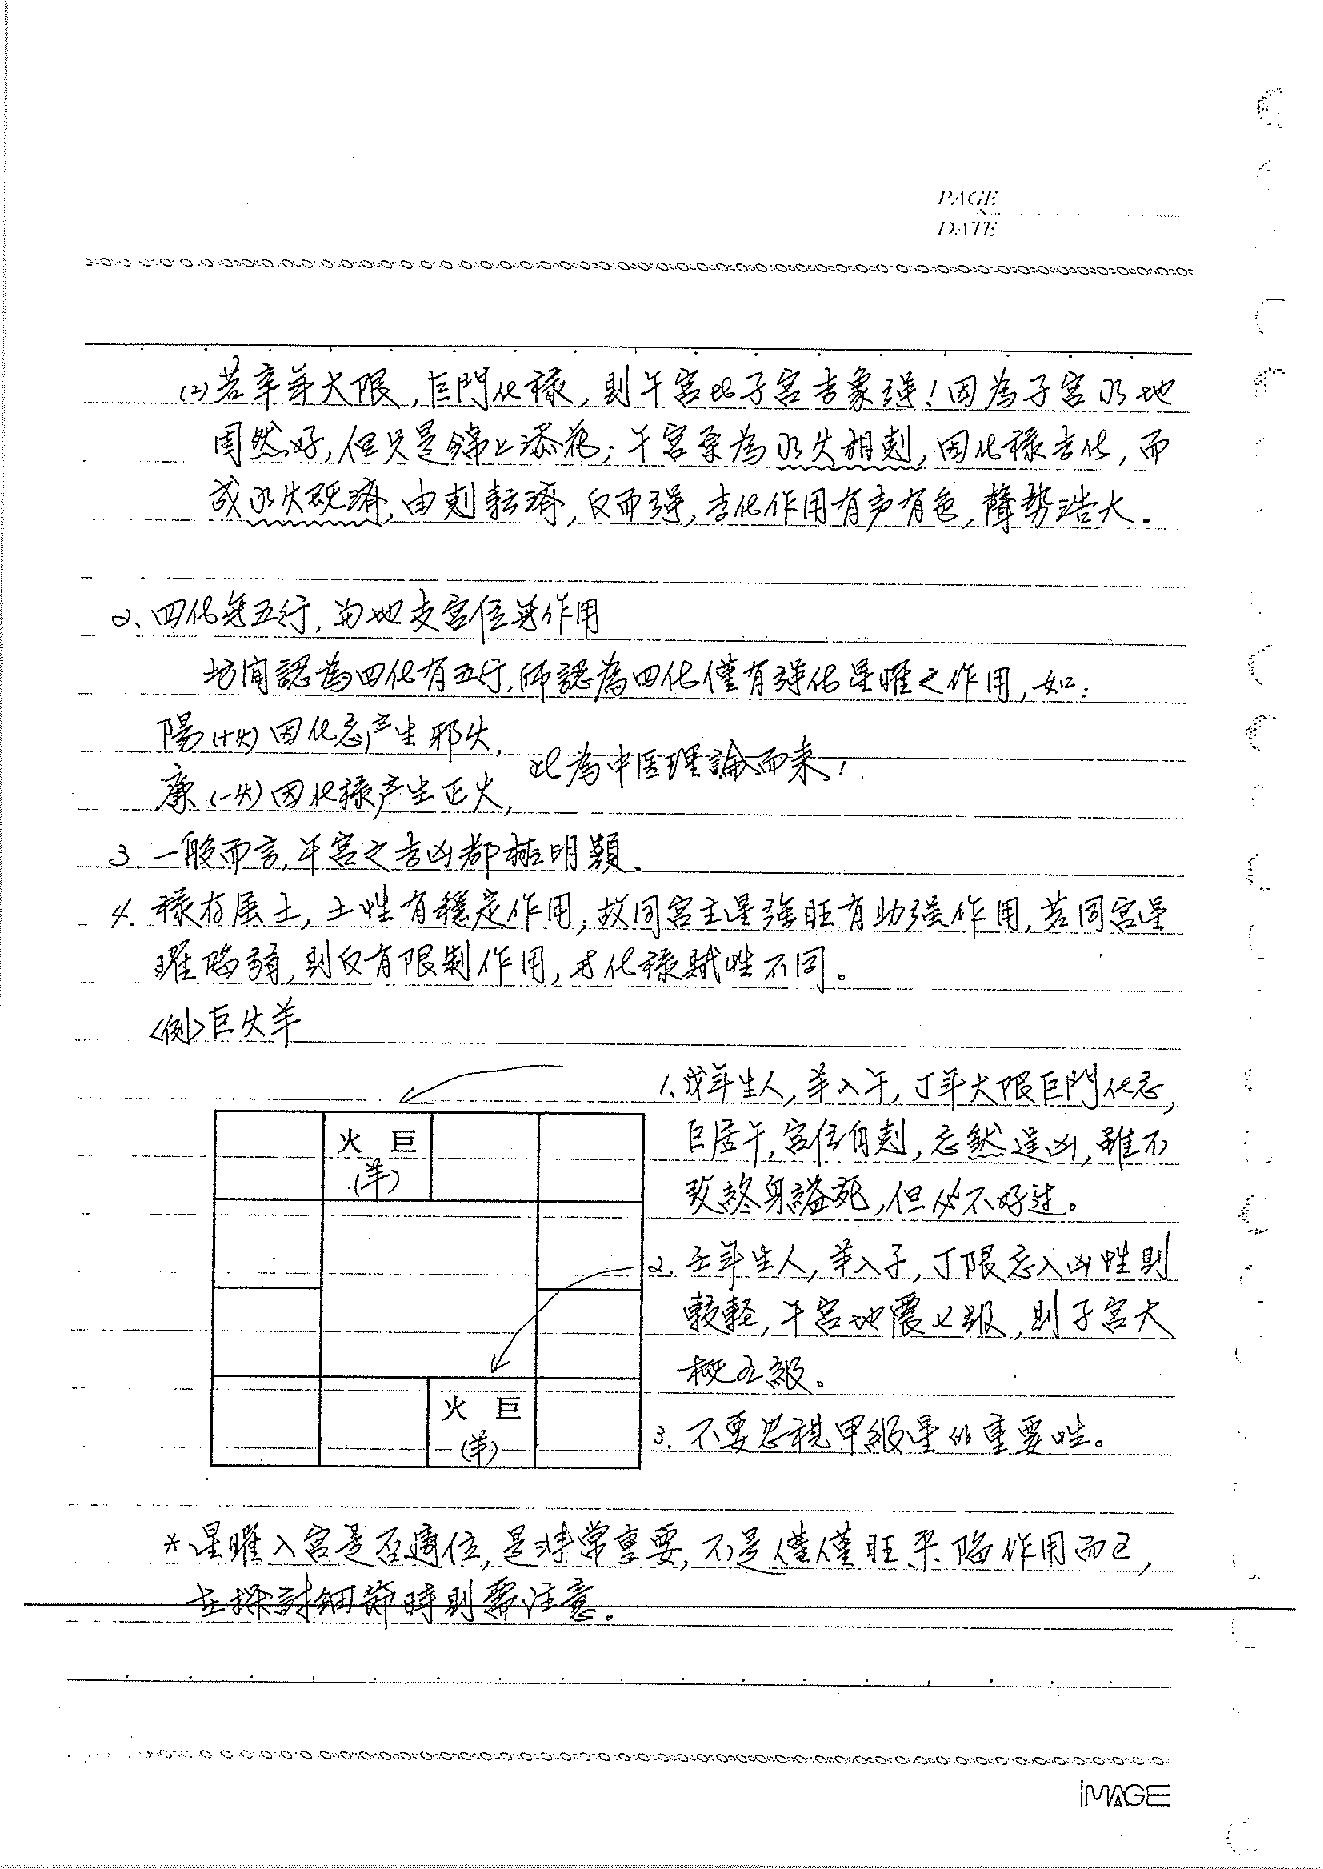 PAGE
DATE
(2)若辛年大限,巨門化祿,則午宮比子宮吉象強!因為子宮水地
固然好,但只是錦上添花;午宮系為水火相剋,因化祿吉化,而
成水火既濟,由剋転濟,反而強,吉化作用有声有色,聲勢浩大.
2、四化無五行,為地支宮位無作用
坊间認為四化有五行,师認為四化僅有強化星曜之作用,如:
陽(+火)因化忌产生邪火,
此為中医理論而来!
廉(-火)因化祿产生正火,
3 一般而言,午宮之吉凶都極明顯.
4. 祿存属土,土性有穩定作用,故同宮主星強旺有助強作用,若同宮星
曜陷弱,則反有限制作用,与化祿賦性不同。
<例>巨火羊
1.戊年生人,羊入午,丁年大限巨門化忌,
巨居午,宮位自剋,忌然逞凶,雖不
致終身縊死,但必不好过。
火 巨
(羊)
2. 壬年生人,羊入子,丁限忌入凶性則
較軽,午宮地震七级,則子宮大
概五級。
火 巨
(羊)
3. 不要忽視甲級星的重要性。
*星曜入宮是否適位,是非常重要,不是僅僅旺平陷作用而已,
在探討細節時則需注意.
iMAGE